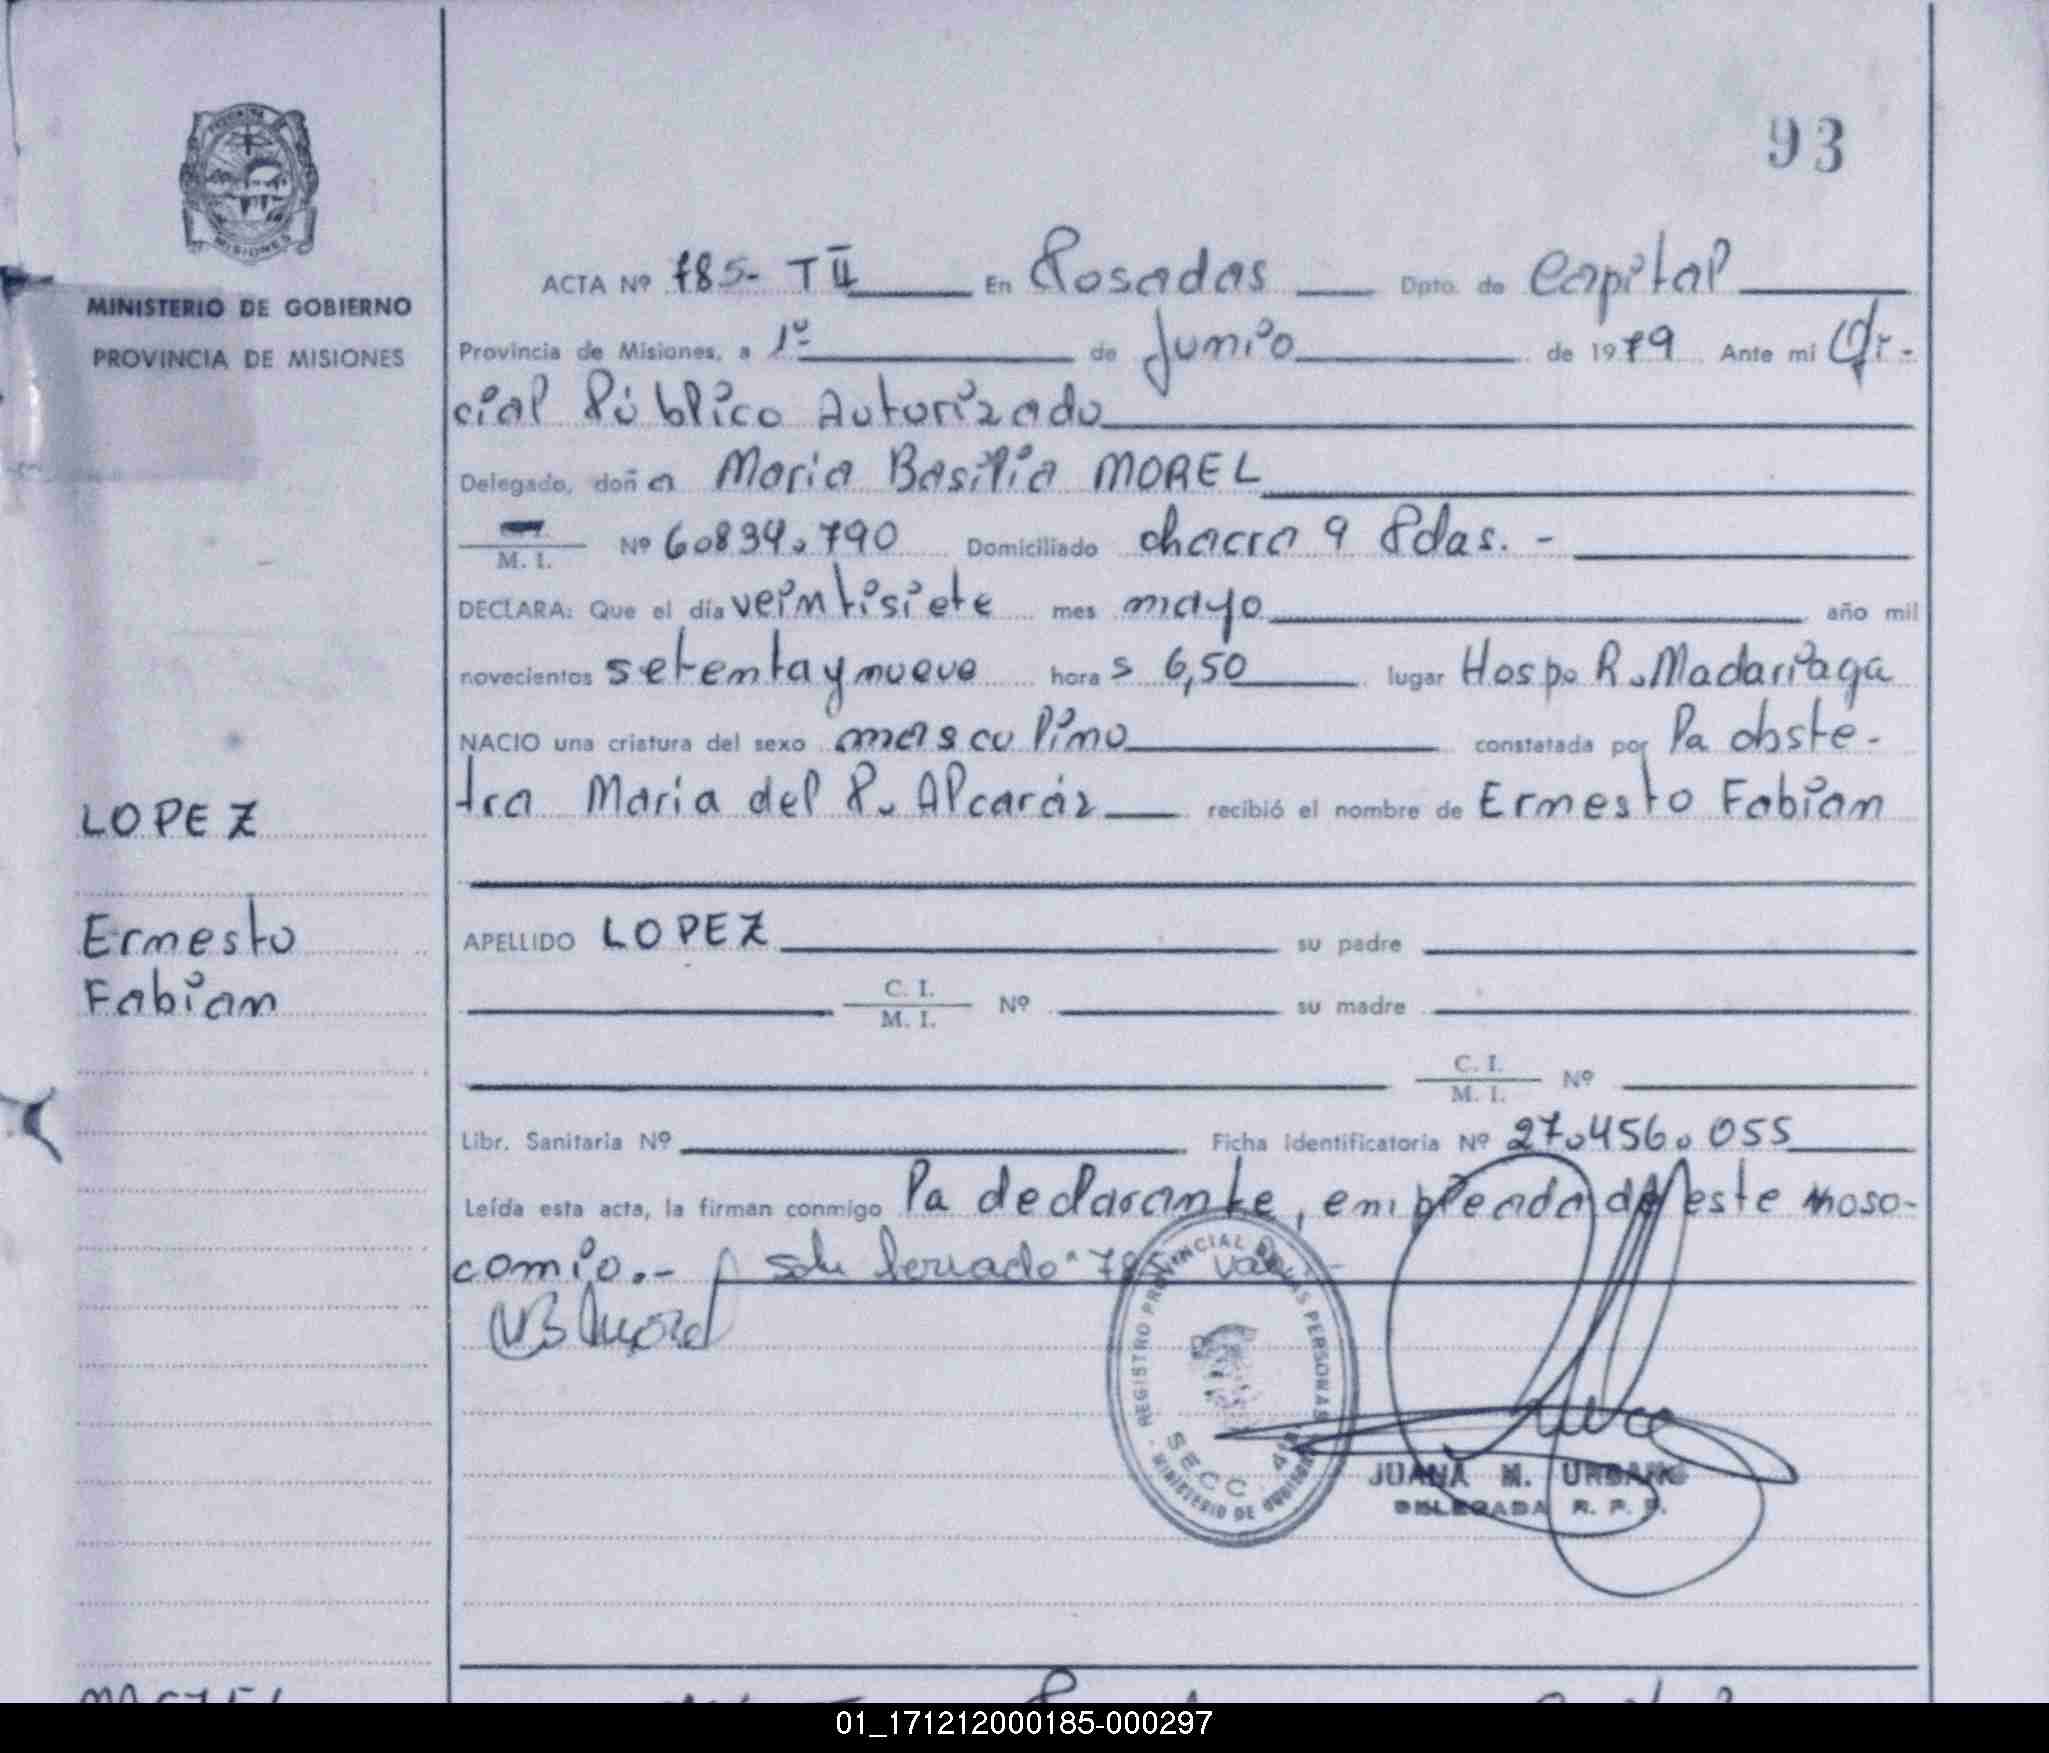 PROVINCIA DE
MISIONES
MINISTERIO DE GOBIERNO
PROVINCIA DE MISIONES
93
ACTA Nº 785- TII En Posadas Dpto. de Capital
Provincia de Misiones, a 1º de Junio de 1979 Ante mi Ofi-
cial Público Autorizado
Delegado, doña Maria Basilia MOREL
M. I. Nº 6.834.790 Domiciliado chacra 9 Pdas. -
DECLARA: Que el día veintisiete mes mayo año mil
novecientos setenta y nueve hora s 6,50 lugar Hosp. R. Madariaga
NACIO una criatura del sexo masculino constatada por la obste-
tra María del R. Alcaráz recibió el nombre de Ernesto Fabian
LOPEZ
Ernesto
Fabian
APELLIDO LOPEZ su padre
C. I.
M. I. Nº su madre
C. I.
M. I. Nº
Libr. Sanitaria Nº Ficha Identificatoria Nº 27.456.055
Leída esta acta, la firman conmigo la declarante, empleada de este noso-
comio.- "785" vale-
MBMorel
REGISTRO PROVINCIAL DE LAS PERSONAS
SECC. 4ta.
MINISTERIO DE GOBIERNO
JUANA M. URBANO
DELEGADA R. P. P.
01_171212000185-000297